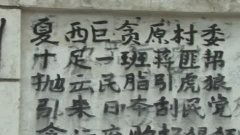 夏西巨贪原村委
十足一班蒋匪帮
抛云民脂引虎狼
引来日本刮民党